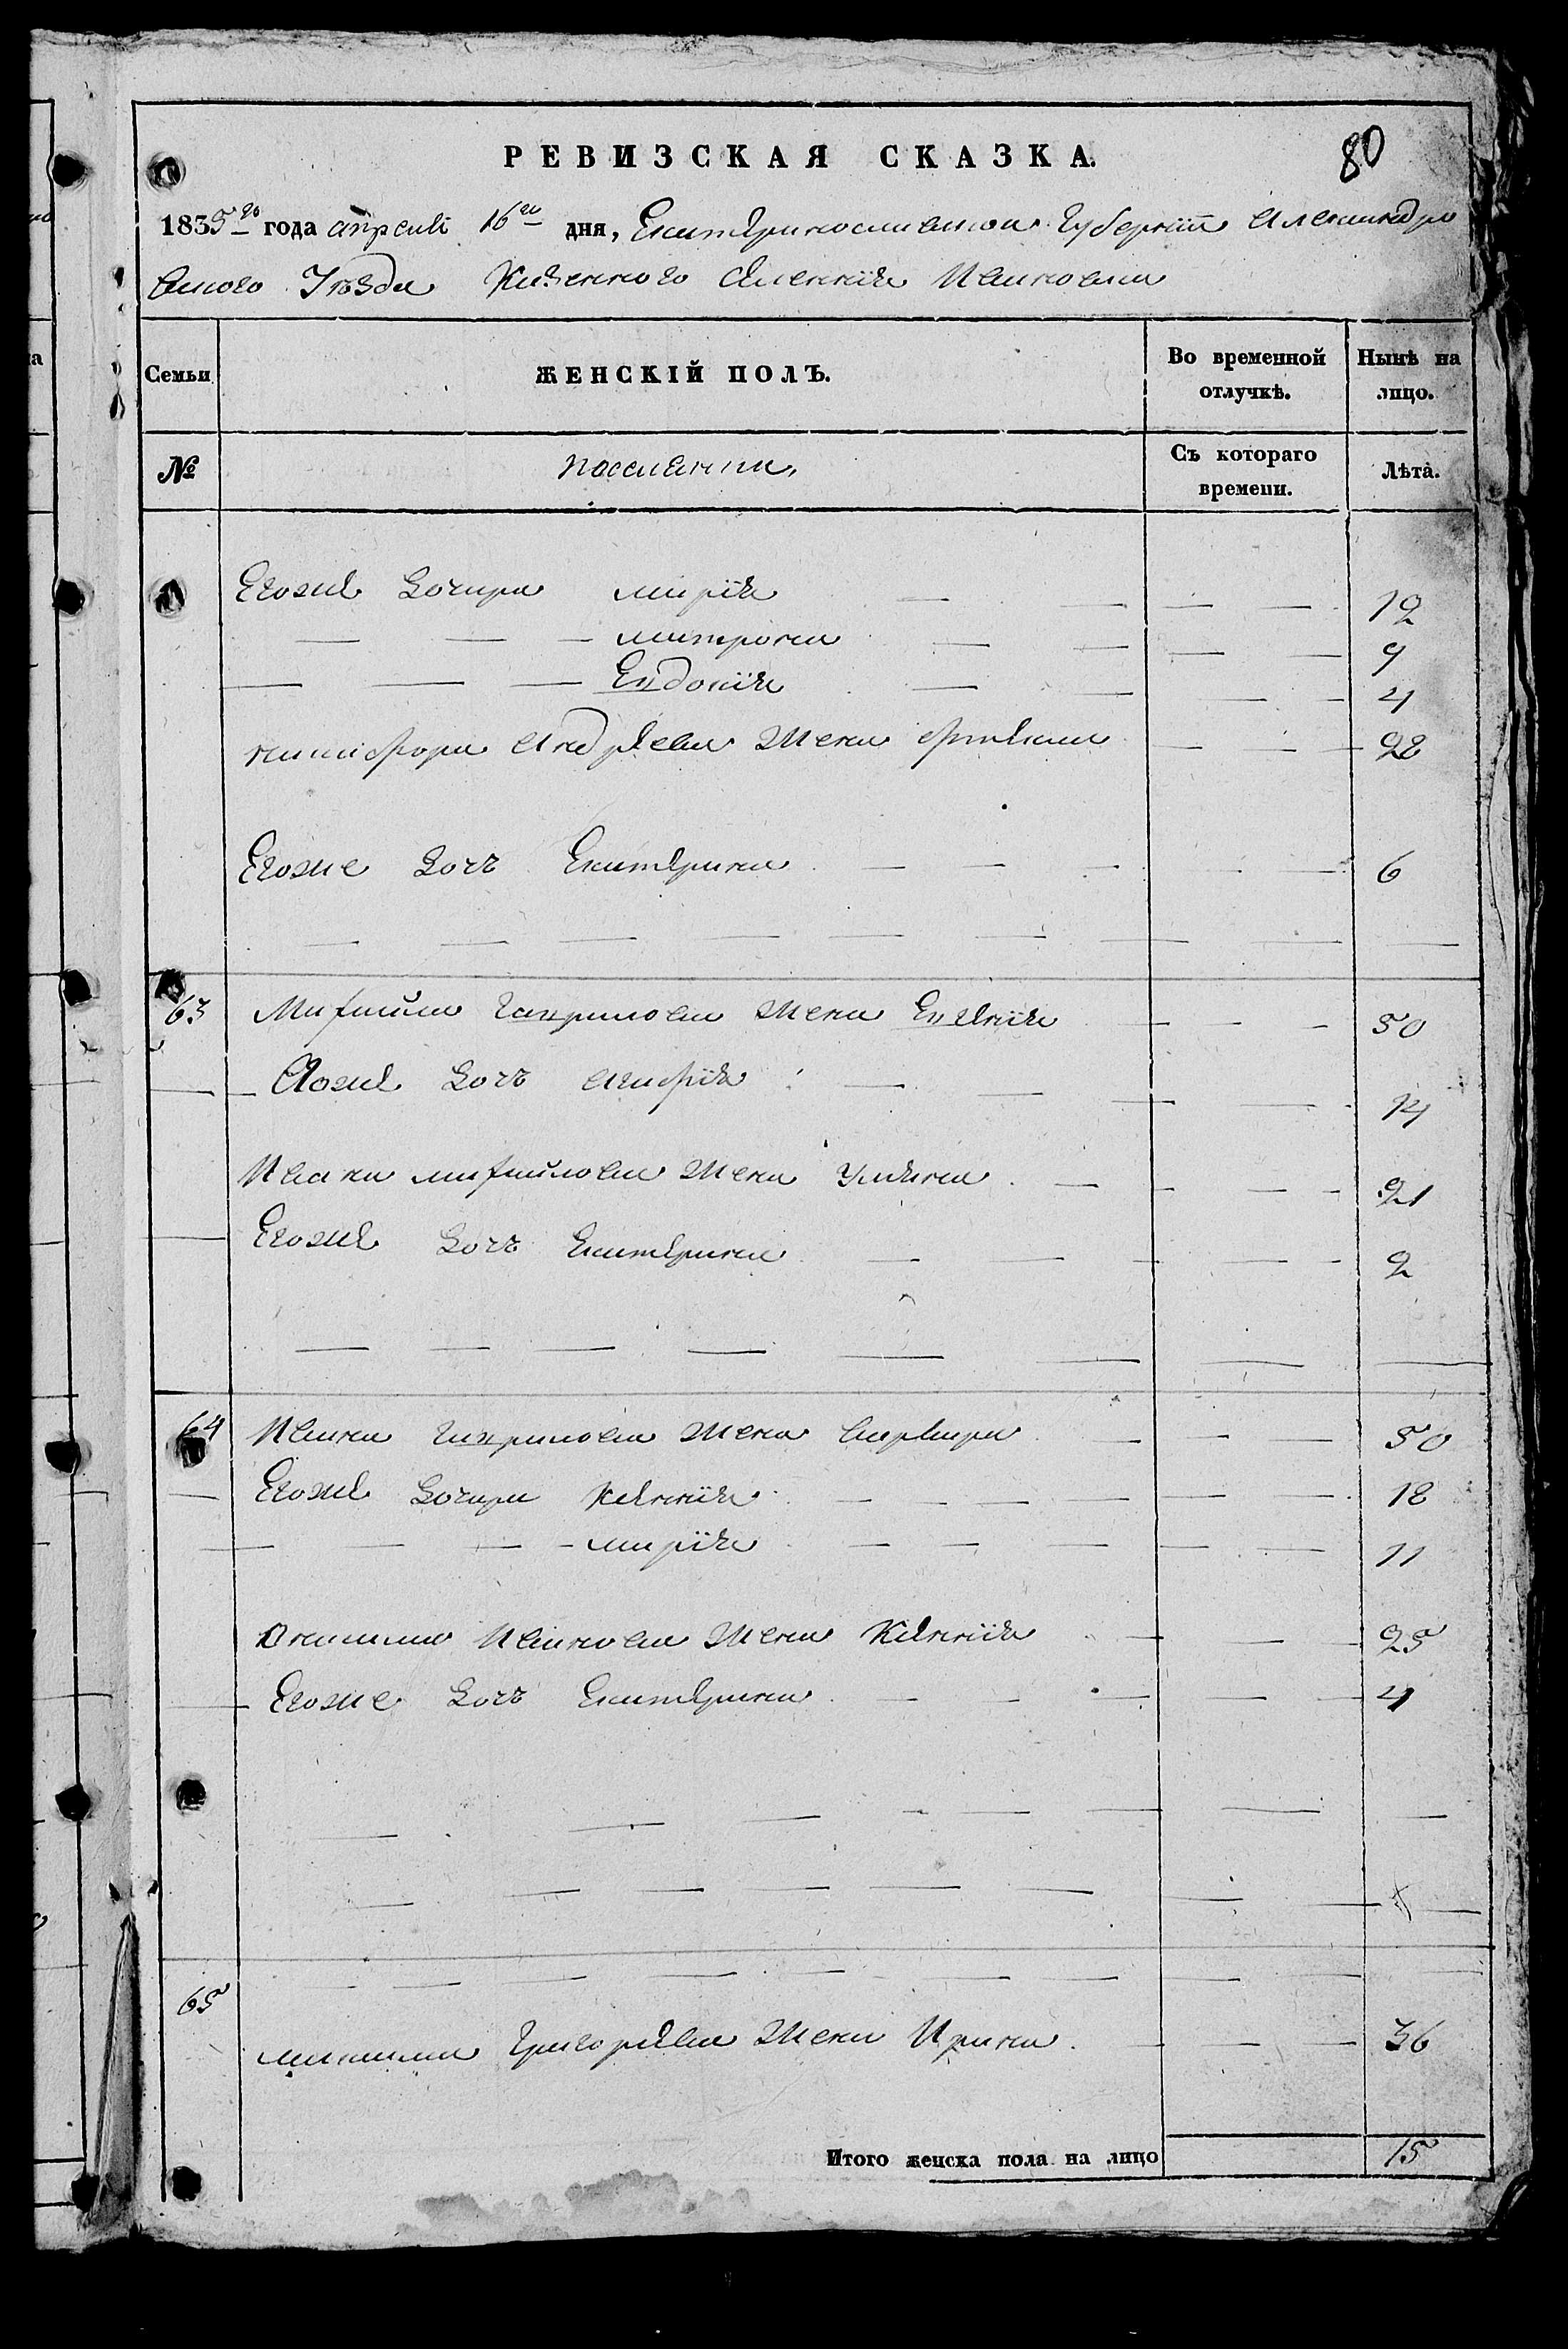 РЕВИЗСКАЯ СКАЗКА.
80
1835го года апреля 16го дня, Екатериносласкои Губернии Александро
вского Уезда Казенного Селения Ивановки
Семьи
ЖЕНСКІЙ ПОЛЪ.
Во временной отлучкѣ.
Нынѣ на лицо.
№
поселянин,
Съ котораго времени.
Лѣта.
Егоже дочери Марія — — — — 12
— — — Матрона — — — — 9
— — — Евдокія — — — — 4
Никифора Андреева жена — — — 28
Егоже дочь Екатерина — — — — — 6
63 Михайла Гаврилова жена Евгенія — — — 50
Егоже дочь Агафія — — — — — 14
Ивана Михайлова жена Ульяна — — — — 21
Егоже дочь Екатерина — — — — — 2
64 Ивана Гаврилова жена Варвара — — — 50
Егоже дочери Ксенія — — — — — — 18
— — — Марія — — — — — 11
Онисима Иванова жена Ксенія — — — 25
Егоже дочь Екатерина — — — — — 4
65
Максима Григорьева жена Ирина — — — 36
Итого женска пола на лицо 15